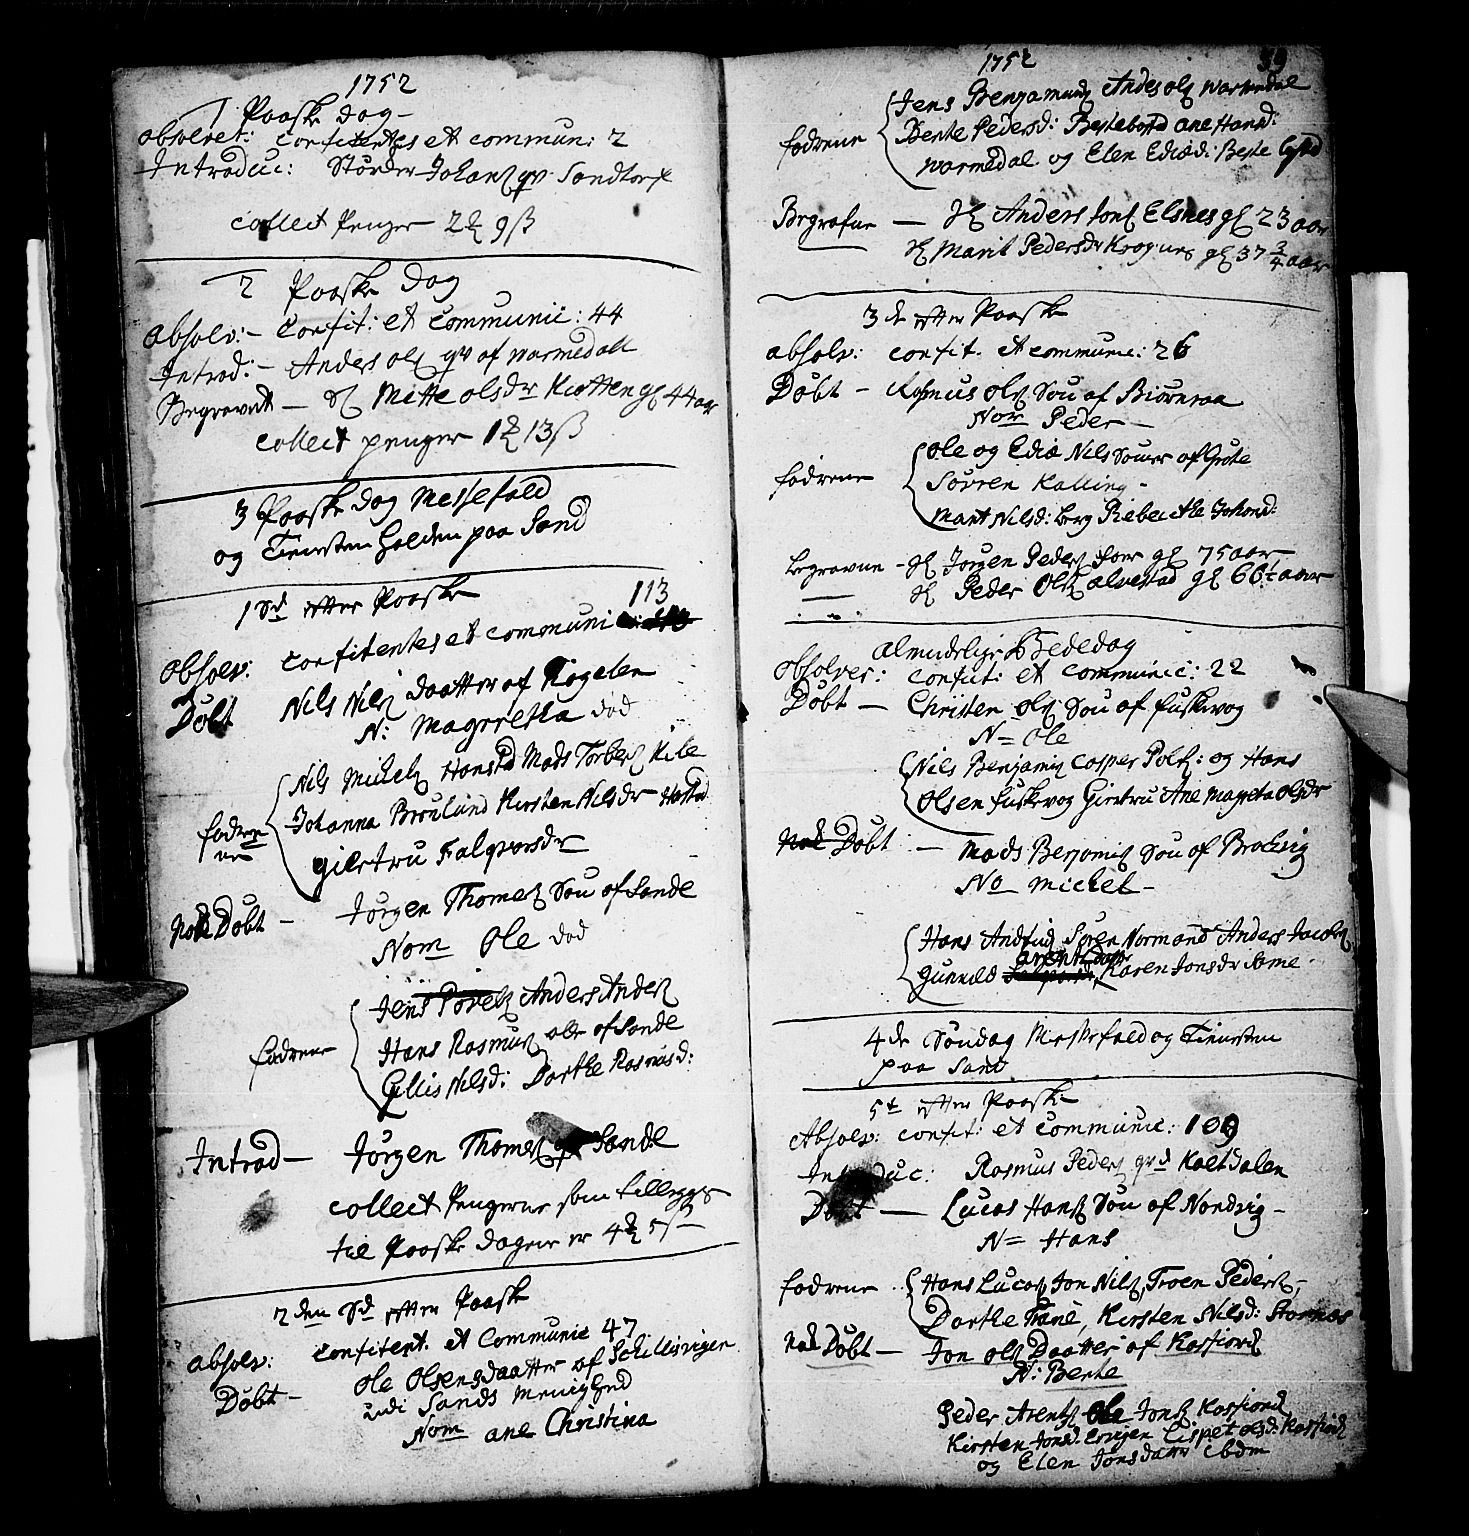 1752
1 Paaske dag
absolvet: confitentes et commun: 2
Introduc: Stúrder Johans qv Sandtorf
collect Penger 2 9 ß
2 Paaske dag
absolv: - confit: et communic: 44
Introd: - Anders ols qv af warmedall
Begravet - Mette olsdr Kiotten gl 44 aar
collect penger 1 13 ß
3 Paaske dag Messefald
og Tienesten holden paa Sand
1 Sd efter Paaske
113
absolv: confitentes et communi
Døbt Nils Nils daatter af Kogelen
N: Magrretha død
Nils Michels Mads Torbers Kile
fadrene Johanna Brøulund Kirsten Nilsdr Harstad
Giertru Falqvorsdr
Nok Døbt - Jørgen Thomes Søn af Sande
Nom Ole død
Jens Povels Anders Anders
fadrene Hans Rasmus alle af Sande
Gollis Nilsd: Dorthe Rasmusd:
Introd - Jørgen Thomes qv Sande
collect Pengerne som tillegges
til Paaske dagene er 4 5 ß
2den Sd efter Paaske
absolv: confitent. et Communic 47
Døbt - Ole Olsens daatter af Schillsvigen
udi Sands Menighed
Nom ane Christina
1752
59
Jens Benjamins Anders ols warmedal
fadrene Berte Pedersd: ane Hansd:
warmedal og Elen
Begrafne - Anders Jons Elsnes gl 23 aar
Marit Pedersdr Kragnes gl 37 3/4 aar
3de efter Paaske
absolv: confit. et commune: 26
Døbt - Rasmus ols Søn af Biørnraa
Nom Peder -
Ole og Edis Nils Sønner af Grøte
fadrene Søvren Kalling -
Marit Nilsd: berg Rebecche Johansd:
begravne - Jørgen Peders foer gl 75 aar
Peder Ols alvestad gl 66 1/2 aar
almindelige Bededag
absolver: confit: et communic: 22
Døbt - Christen ols Søn af fuskevog
N = Ole
Nils Benjamins Casper Pols: og Hans
Olsen fuskevog Giertru Ane Magreta Olsdr
Nok Døbt - Mads Benjamins Søn af Brochvig
No michel -
Hans Søren Normand Anders Jacobs
arentsdatr
Gunnild Karen Jonsdr Same
4de Søndag Messefald og Tienesten
paa Sand
5t efter Paaske
Absolv: confit: et communic: 109
Introduc: Rasmus Peders qvd Kaeldalen
Døbt - Lucas Hans Søn af Nordvig -
N = Hans
fadrene Hans Lucas, Jon Nils, Troen Peders, -
Dorthe Trane, Kirsten Nilsd: Stornæs
nok Døbt - Jon ols Daatter af Kasfiord
N: Berte
Peder Arents Ole Jons Kasfiord
Kirsten Jonsd: Lispet olsd: Kasfiord
og Elen Jonsdatter ibdm